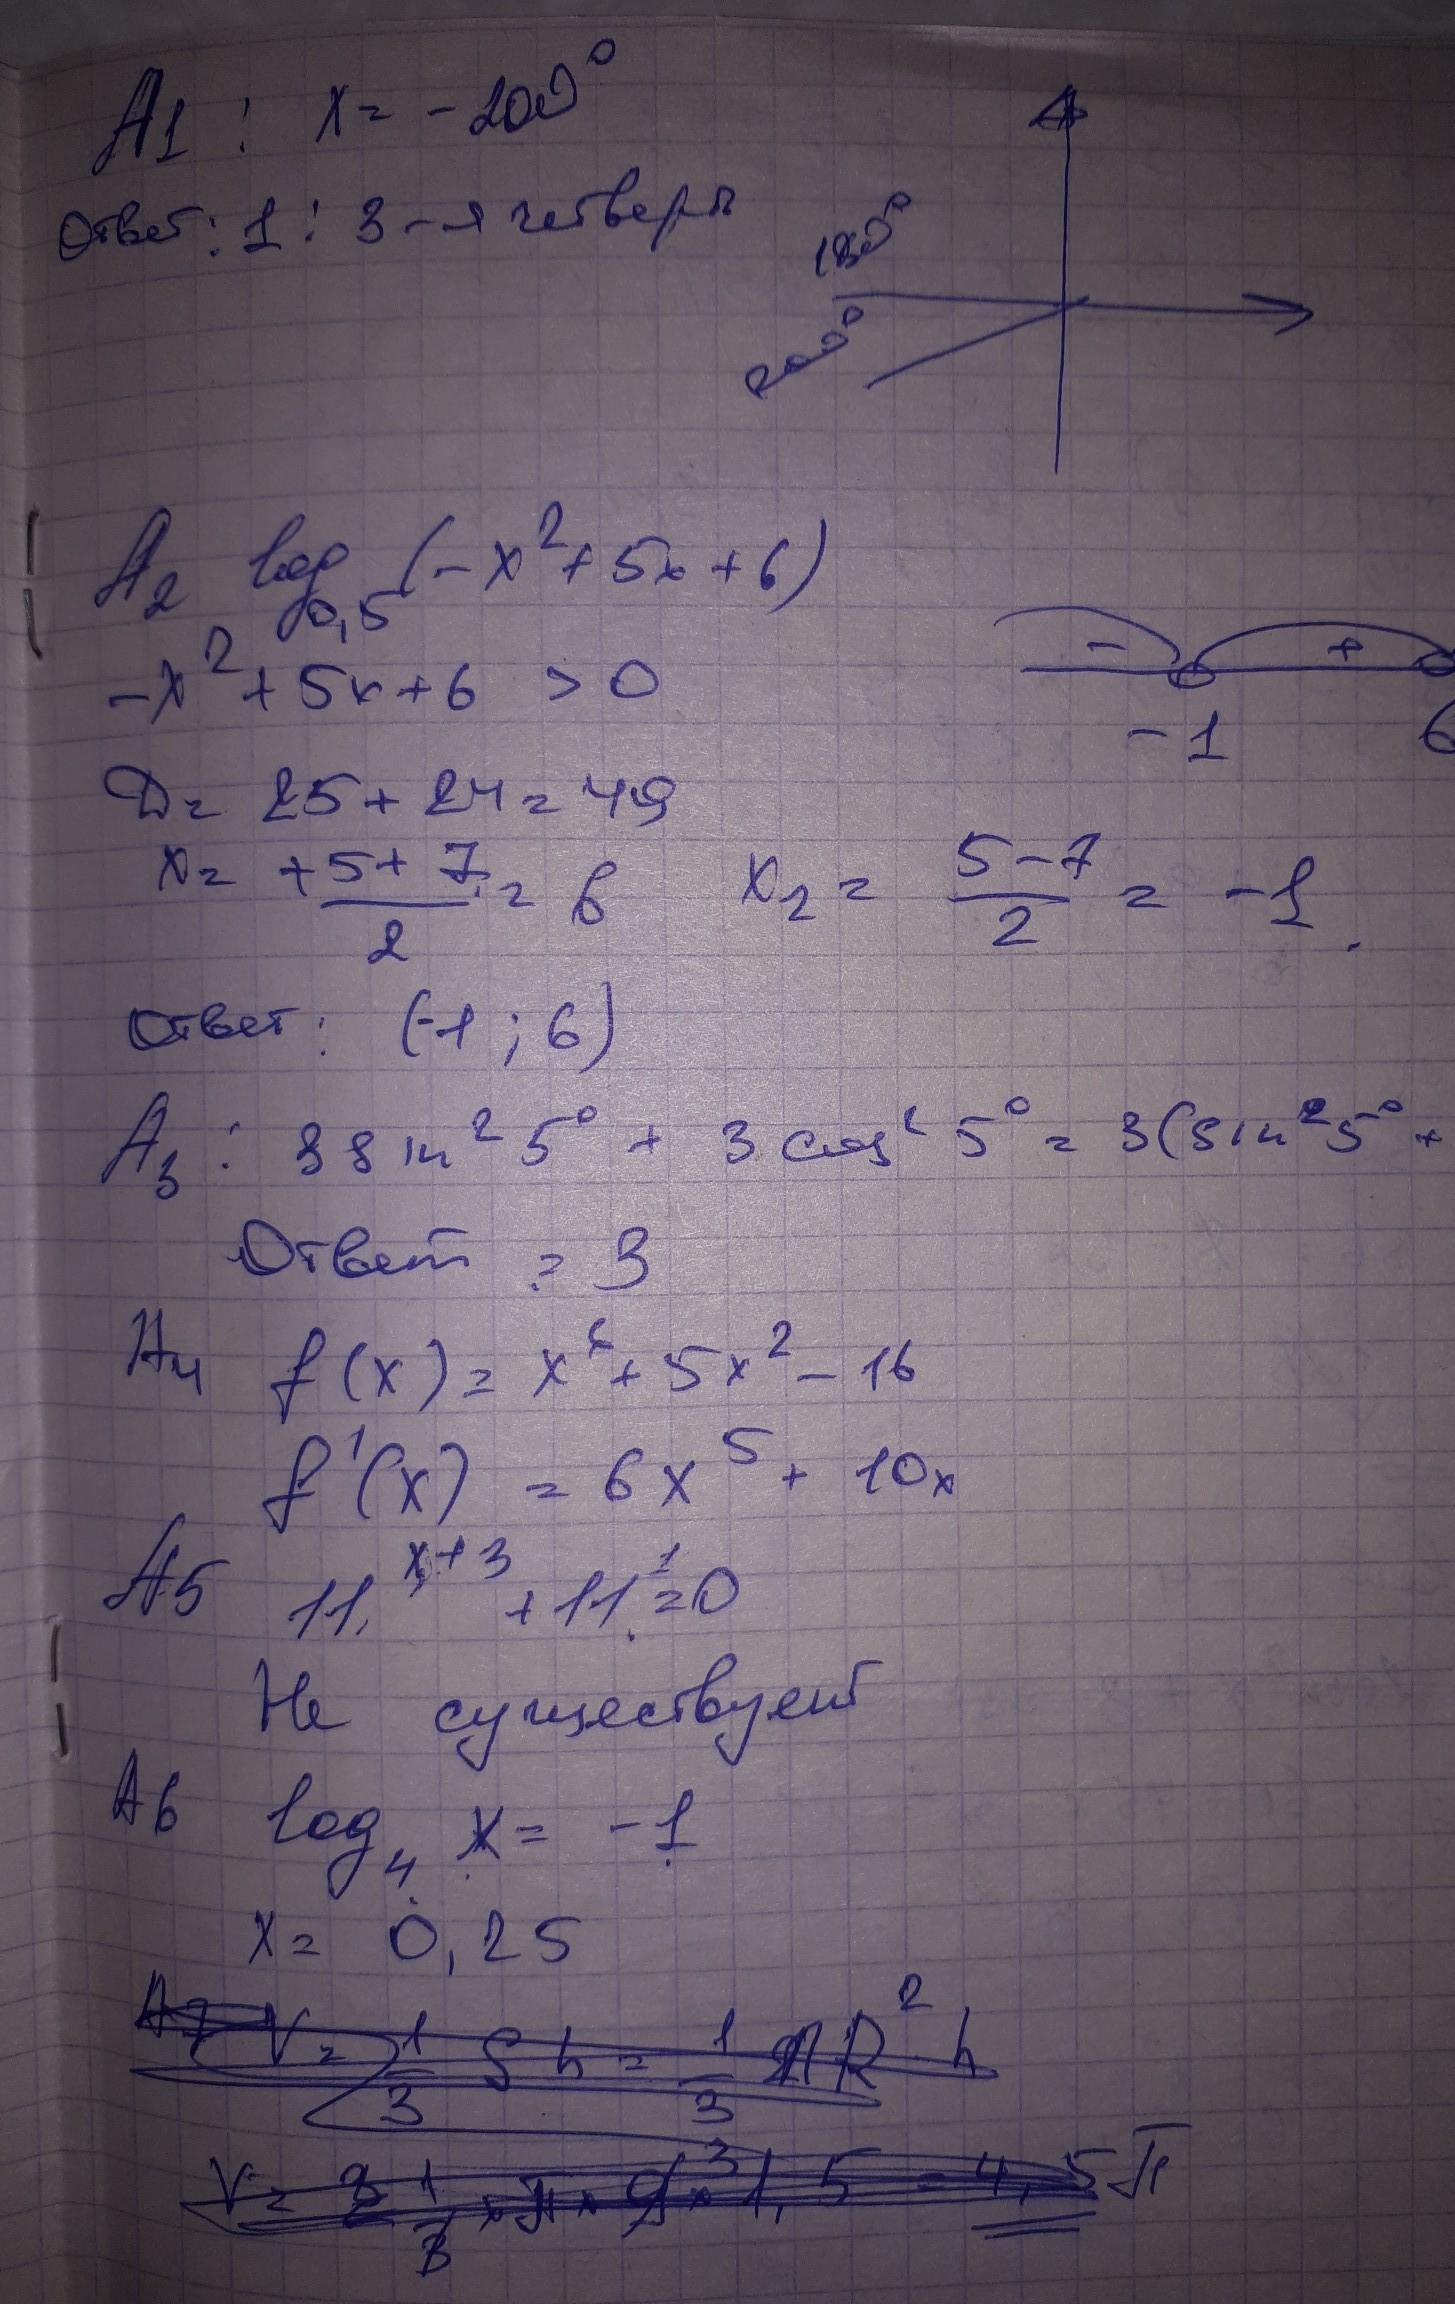 A1: x = -200°
Ответ: 1: 3-я четверть
180°
200°
A2 log0,5 (-x²+5x+6)
-x²+5x+6 > 0
- +
-1 6
D = 25+24 = 49
x = +5+7/2 = 6 x2 = 5-7/2 = -1.
Ответ: (-1; 6)
A3: 3sin²5° + 3cos²5° = 3(sin²5° +
Ответ = 3
A4 f(x) = x⁶ + 5x² - 16
f'(x) = 6x⁵ + 10x
A5 11^x+3 + 11^1 = 0
Не существует
A6 log4 x = -1
x = 0,25
A7 V = 1/3 Sh = 1/3 πR²h